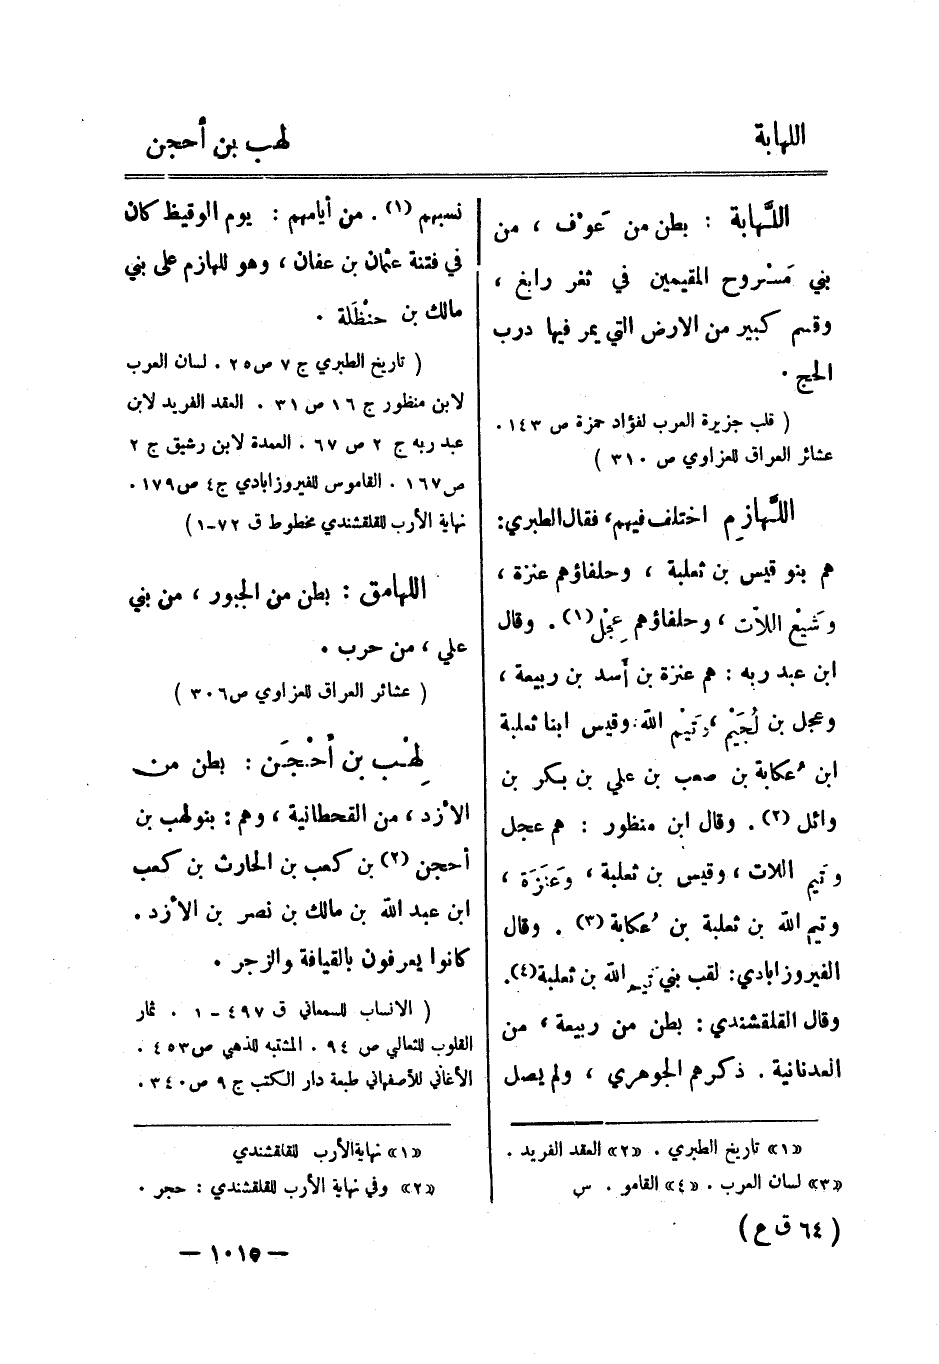 اللهابة
لهب بن أحجن
اللَّهابة : بطن من عَوْف ، من
بني مَسْروح المقيمين في ثغر رابغ ،
وقسم كبير من الارض التي يمر فيها درب
الحج .
( قلب جزيرة العرب لفؤاد حمزة ص ١٤٣ .
عشائر العراق للعزاوي ص ٣١٠ )
اللَّهازِم اختلف فيهم، فقال الطبري:
هم بنو قيس بن ثعلبة ، وحلفاؤهم عنزة ،
وَشَيْعُ اللآت ، وحلفاؤهم عِجْل(١) . وقال
ابن عبد ربه : هم عنزة بن أسد بن ربيعة ،
وعجل بن لُجَيْم ، وَتَيْم الله وقيس ابنا ثعلبة
ابن عُكابة بن صعب بن علي بن بكر بن
وائل (٢) . وقال ابن منظور : هم عجل
وتيم اللات ، وقيس بن ثعلبة ، وعَنَزَة ،
وتيم الله بن ثعلبة بن عُكابة (٣) . وقال
الفيروزابادي: لقب بني تَيم الله بن ثعلبة(٤).
وقال القلقشندي : بطن من ربيعة ، من
العدنانية . ذكرهم الجوهري ، ولم يصل
«١» تاريخ الطبري . «٢» العقد الفريد .
«٣» لسان العرب . «٤» القامو . س
( ٦٤ ق ع )
نسبهم (١) . من أيامهم : يوم الوقيظ كان
في فتنة عثمان بن عفان ، وهو للهازم على بني
مالك بن حنْظَلة .
( تاريخ الطبري ج ٧ ص ٢٥ . لسان العرب
لابن منظور ج ١٦ ص ٣١ . العقد الفريد لابن
عبد ربه ج ٢ ص ٦٧ . العمدة لابن رشيق ج ٢
ص ١٦٧ . القاموس للفيروزابادي ج٤ ص ١٧٩ .
نهاية الأرب للقلقشندي مخطوط ق ٧٢-١)
اللهامق : بطن من الجبور ، من بني
علي ، من حرب .
( عشائر العراق للعزاوي ص ٣٠٦ )
لِهْب بن أحْجَن : بطن من
الأزد ، من القحطانية ، وهم : بنو لهب بن
أحجن (٢) بن كعب بن الحارث بن كعب
ابن عبد الله بن مالك بن نصر بن الأزد .
كانوا يعرفون بالقيافة والزجر .
( الانساب للسمعاني ق ٤٩٧ - ١ . ثمار
القلوب للثعالي ص ٩٤ . المشتبه للذهبي ص ٤٥٣ .
الأغاني للأصفهاني طبعة دار الكتب ج ٩ ص ٣٤٠ .
«١» نهاية الأرب للقلقشندي
«٢» وفي نهاية الأرب للقلقشندي : حجر .
— ١٠١٥ —